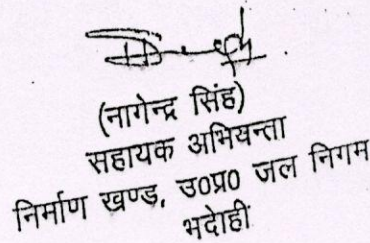 (नागेन्द्र सिंह)
सहायक अभियन्ता
निर्माण खण्ड, उ०प्र० जल निगम
भदोही